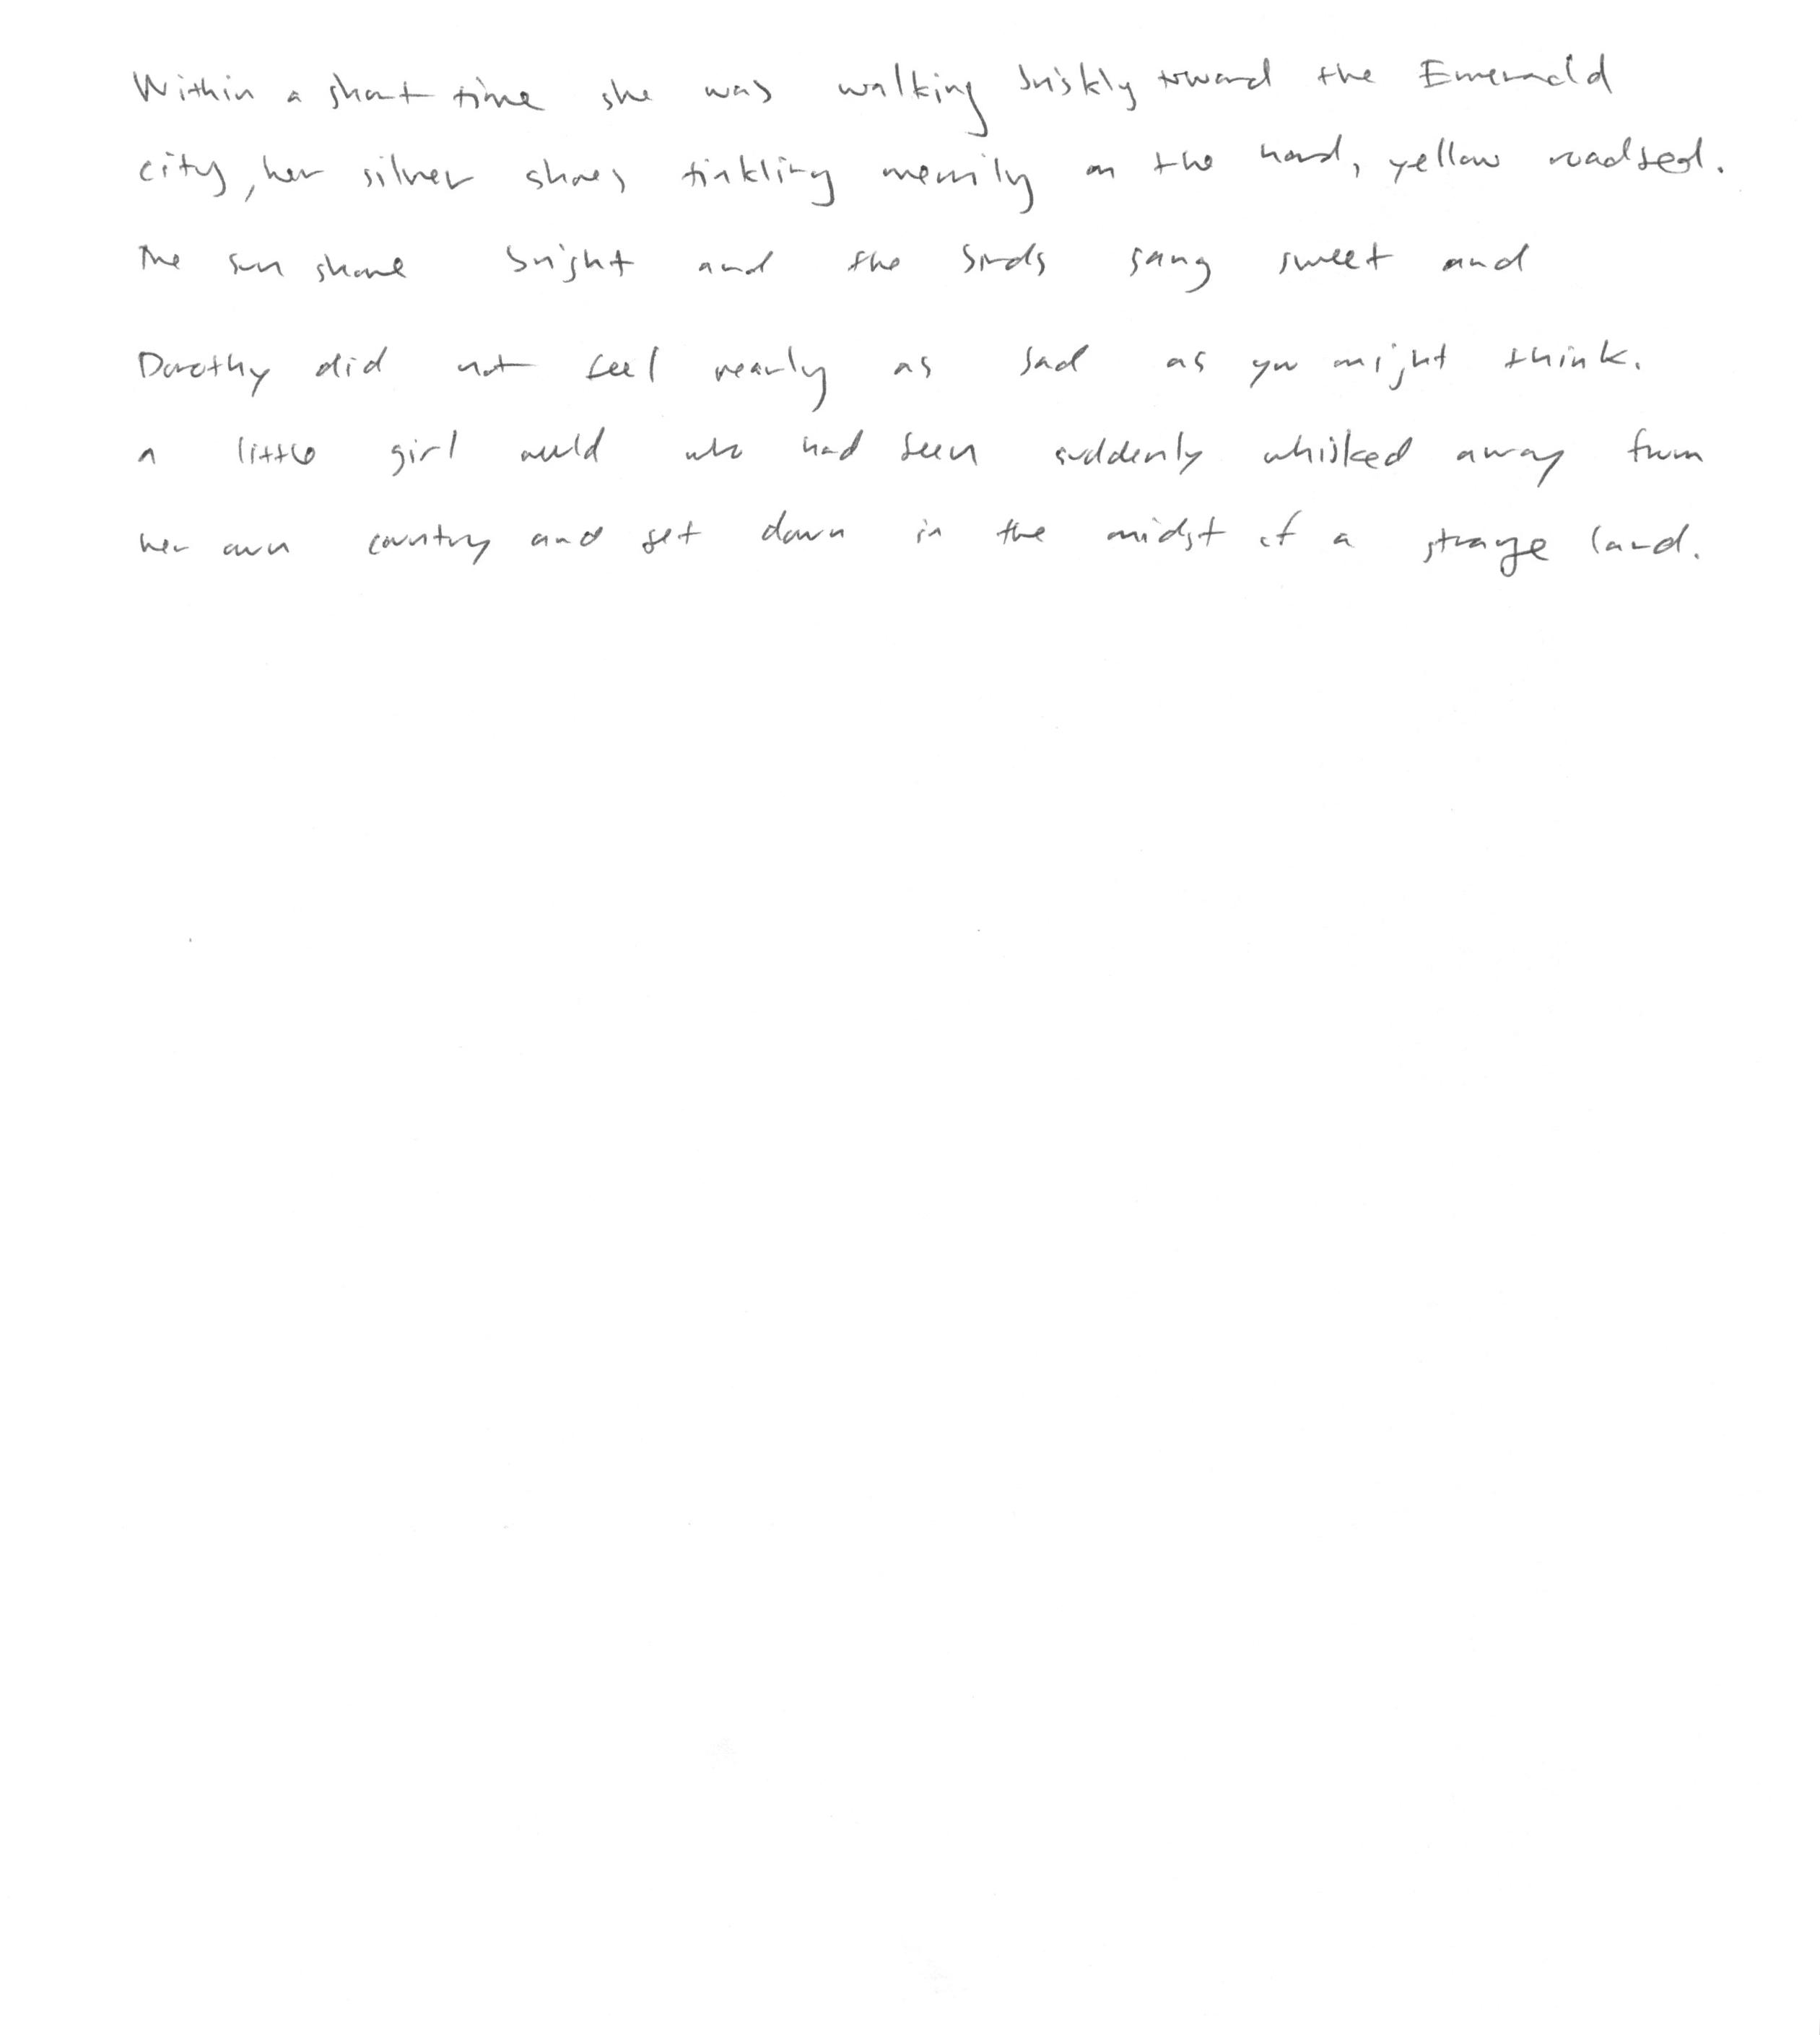 Within a short time she was walking briskly toward the Emerald
city, her silver shoes tinkling merrily on the hard, yellow roadbed.
The sun shone bright and the birds sang sweet and
Dorothy did not feel nearly as bad as you might think.
a little girl would who had been suddenly whisked away from
her own country and set down in the midst of a strange land.